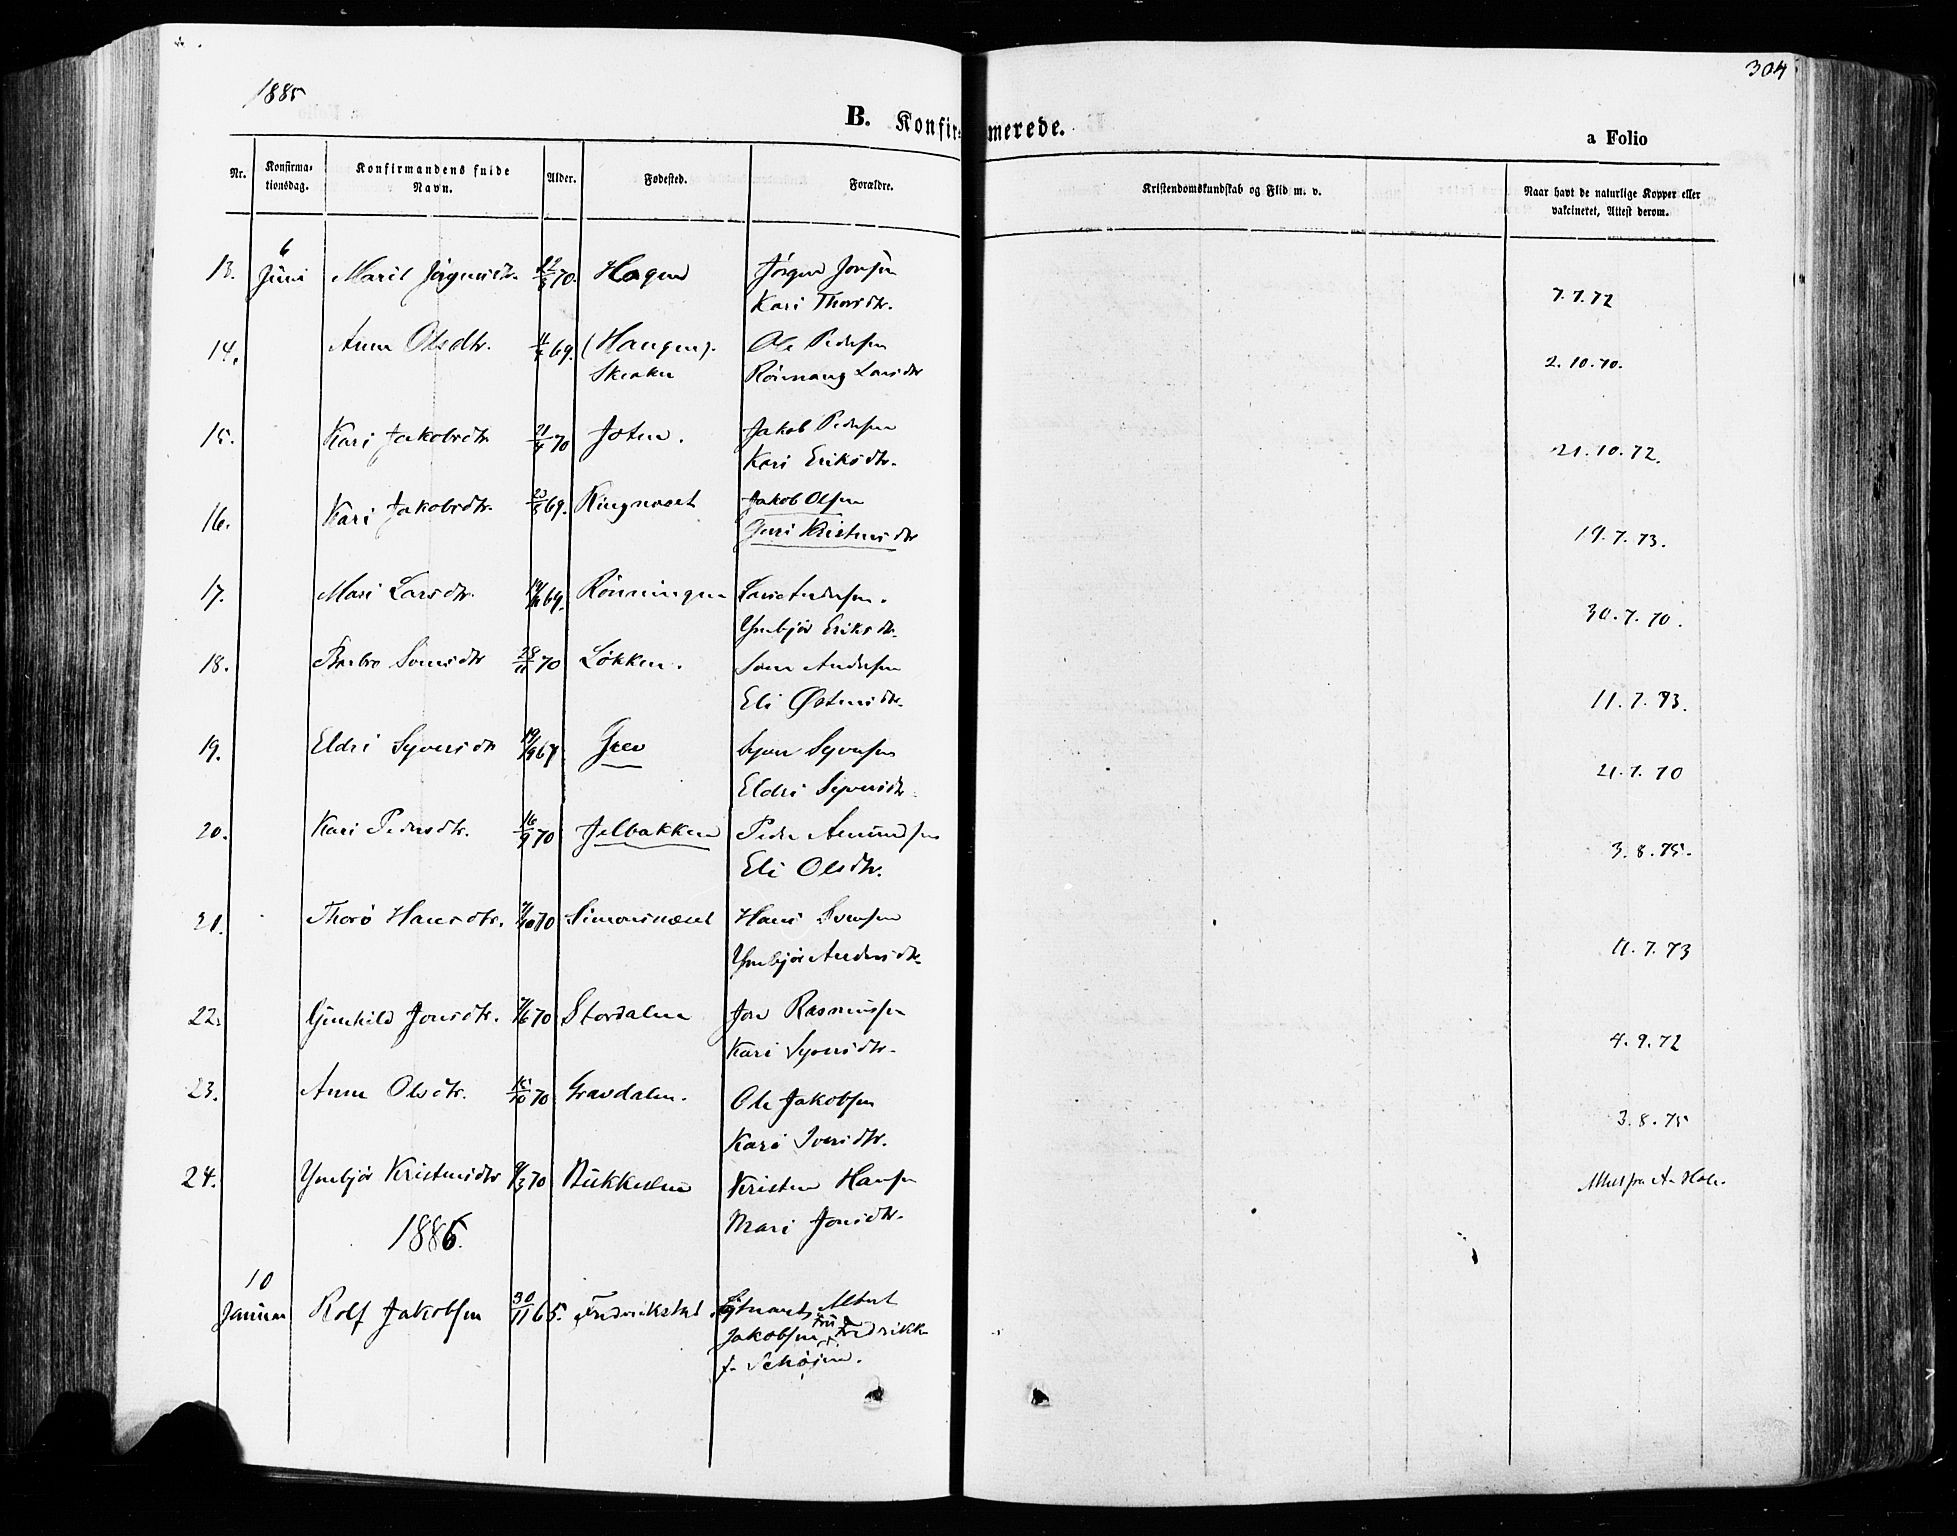 304
1885
B. Konfirmerede.
a Folio
Nr. Konfirma-tionsdag. Konfirmandens fulde Navn. Alder. Fødested. Forældre. Kristendomskundskab og Flid m. v. Naar havt de naturlige Kopper eller vakcineret, Attest derom.
13. 6 Juni Marit Jørgensdtr. 70. Hagen Jørgen Jonsen
Kari Thorsdtr. 7.7.72
14. Anne Olsdtr. 69. (Haugen). Ole Pedersen
Skeaker Rönnaug Larsdtr 2.10.70.
15. Kari Jakobsdtr 21/4 70 Joten. Jakob Pedersen
Kari Eriksdtr. 21.10.72.
16. Kari Jakobsdtr. 69. Ringneset Jakob Olsen
Guri Kristensdtr 19.7.73.
17. Mari Larsdtr. 69. Rönningen Lars Andersen.
Ymbjör Eriksdtr. 30.7.70.
18. Barbro Sonesdtr 70 Løkken. Sone Andersen
Eli Østensdtr. 11.7.73.
19. Eldri Syversdtr 19/9 67 Grev Syver Syversen
Eldri Syversdtr. 21.7.70
20. Kari Pedersdtr. 16/9 70 Jelbakken Peder Amundsen
Eli Olsdtr. 3.8.75.
21. Thorö Hansdtr. 70 Simonsnæset Hans Svensen
Ymbjör Andersdtr. 11.7.73
22. Gunhild Jonsdtr. 70 Stordalen Jon Rasmussen
Kari Syversdtr. 4.9.72
23. Anne Olsdtr. 15/10 70 Gravdalen. Ole Jakobsen
Kari Iversdtr. 3.8.75
24. Ymbjör Kristensdtr 70 Bükkeslien Kristen Hansen
Mari Jonsdtr. Attest fra A. Hole.
1886.
10 Januar Rolf Jakobsen 30/11 65. Fredrikstad Albert
Jakobsen Fru Fredrikke
f. Schöjen.